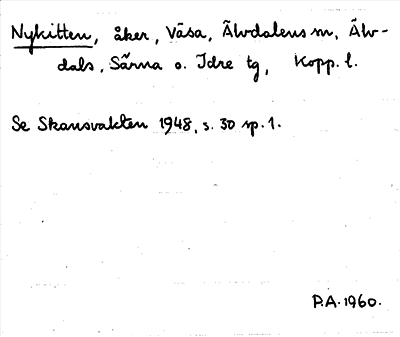 Nykitten, åker, Väsa, Älvdalens sn, Älv-
dals, Särna o. Idre tg, Kopp. l.
Se Skansvakten 1948, s. 30 sp. 1.
P.A. 1960.